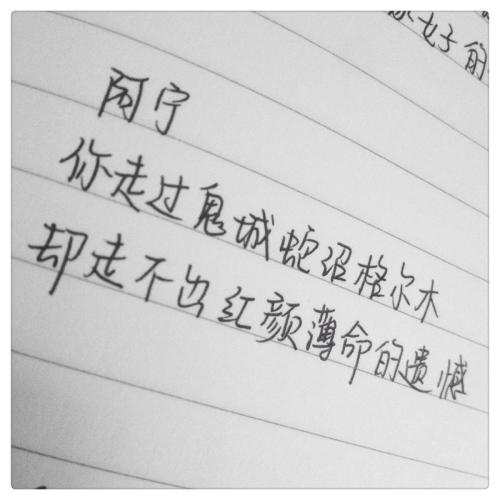 你好的
阿宁
你走过鬼城蛇沼格尔木
却走不出红颜薄命的遗憾